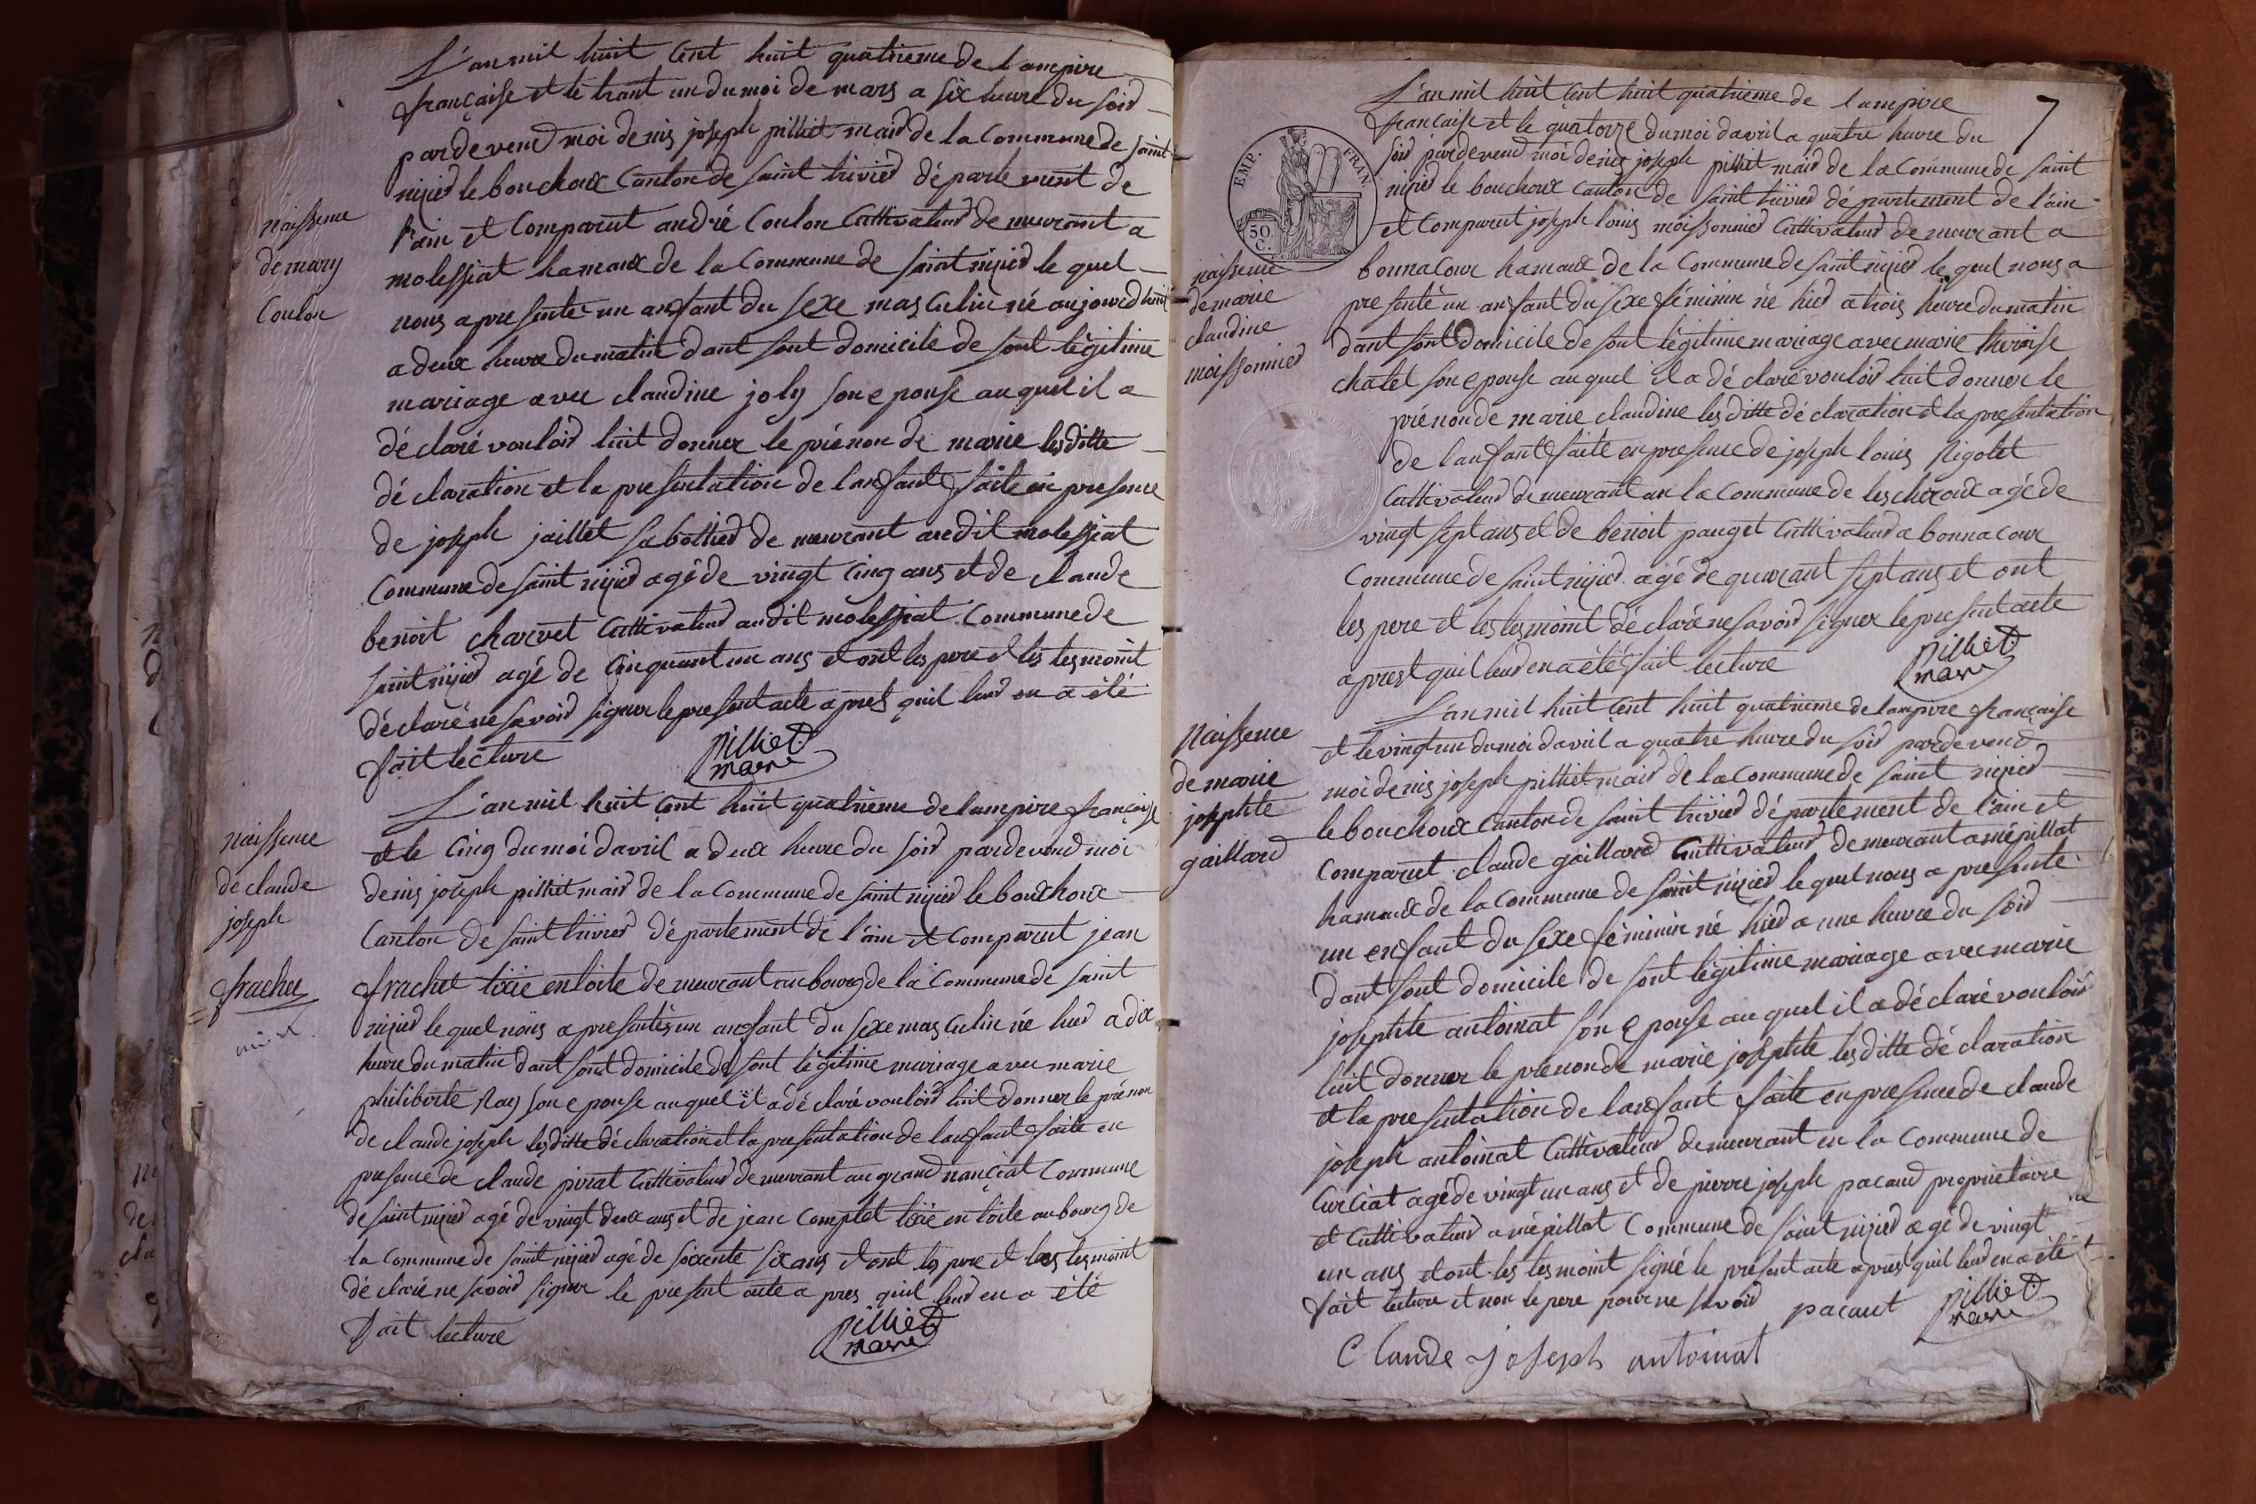 L'an mil huit Cent huit quatrieme de lampire
française et le trant un du moi de mars a six heure du soir
pardevend moi denis joseph pilliet mair de la Commune de saint
nizier le bouchoux Canton de saint trivier département de
l'ain et Comparut andré Coulon Cultivateur demeurant a
molessiat hamaux de la Commune de saint nizier le quel
nous a presenté un anfant du sexe masculin né aujourdhuit
a deux heure du matin dant sont domicile de sont légitime
mariage avec claudine joly son epouse auquel il a
déclaré vouloir luit donner le prénon de marie lesditte
déclaration et la presentation de lanfant faite en presence
de joseph jaillet sabottier demeurant audit molessiat
Commune de saint nizier agé de vingt cinq ans et de claude
benoit charvet Cultivateur audit molessiat Commune de
saint nizier agé de cinquant un ans et ont les pere et les tesmoint
déclaré ne savoir signer le present acte apres quil leur en a été
fait lecture
pilliet
maire
naissence
de mary
Coulon
L'an mil huit Cent huit quatrieme de lampire française
et le Cinq du moi davril a deux heure du soir pardevend moi
denis joseph pilliet mair de la Commune de saint nizier le bouchoux
Canton de saint trivier département de l'ain et Comparut jean
frachet tixie en toile demeurant au bourg de la Commune de saint
nizier le quel nous a presentés un anfant du sexe masculin né hier a dix
heure du matin dant sont domicile de sont légitime mariage avec marie
philiberte Ray son epouse auquel il a déclaré vouloir luit donner le prénon
de claude joseph lesditte déclaration et la presentation de lanfant faite en
presence de claude pirat Cultivateur demeurant au grand nanciat Commune
de saint nizier agé de vingt deux ans et de jean Complet tixie en toile au bourg de
la Commune de saint nizier agé de soixente six ans et ont les pere et les tesmoint
déclaré ne savoir signer le present acte a pres quil leur en a été
fait lecture
pilliet
maire
naissence
de claude
joseph
frachet
7
EMP. FRAN.
50
C.
L'an mil huit Cent huit quatrieme de lampire
française et le quatorze du moi davril a quatre heure du
soir pardevend moi denis joseph pilliet mair de la Commune de saint
nizier le bouchoux Canton de saint trivier département de l'ain
et Comparut joseph louis moissonnier Cultivateur demeurant a
bonnacour hamaux de la Commune de saint nizier le quel nous a
presenté un anfant du sexe féminin né hier a trois heure du matin
dant sont domicile de sont légitime mariage avec marie theraise
chatel son epouse auquel il a déclaré vouloir luit donner le
prénon de marie claudine lesditte déclaration et la presentation
de lanfant faite en presence de joseph louis Rigolet
Cultivateur demeurant an la Commune de lescheroux agé de
vingt sept ans et de benoit pauget Cultivateur a bonnacour
Commune de saint nizier agé de quarant sept ans et ont
les pere et les tesmoint déclaré ne savoir signer le present acte
aprest quil leur en a été fait lecture
pilliet
maire
naissence
de marie
claudine
moissonnier
L'an mil huit Cent huit quatrieme de lampire française
et le vingt un du moi davril a quatre heure du soir pardevend
moi denis joseph pilliet mair de la Commune de saint nizier
le bouchoux Canton de saint trivier département de l'ain et
Comparut claude gaillard Cultivateur demeurant a mépillat
hamaux de la Commune de saint nizier le quel nous a presenté
un enfant du sexe féminin né hier a une heure du soir
dant sont domicile de sont légitime mariage avec marie
josephte antoinat son epouse auquel il a déclaré vouloir
luit donner le prénon de marie josephte lesditte déclaration
et la presentation de lanfant faite en presence de claude
joseph antoinat Cultivateur demeurant en la Commune de
Curciat agé de vingt un ans et de pierre joseph pacaud proprietaire
et Cultivateur a mépillat Commune de saint nizier agé de vingt
un ans et ont les tesmoint signé le present acte aprest quil leur en a été
fait lecture et non le pere pour ne savoir
pacaut
pilliet
maire
Claude joseph antoinat
Naissence
de marie
josephte
gaillard